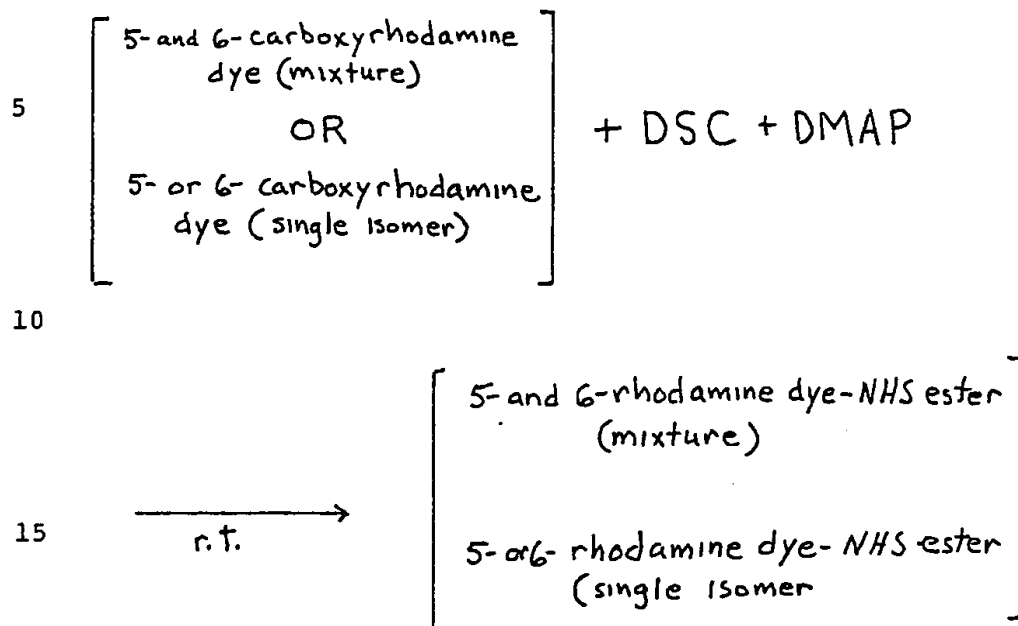 5- and 6-carboxyrhodamine
dye (mixture)
5
OR
+ DSC + DMAP
5- or 6- carboxyrhodamine
dye (single isomer)
10
5-and 6-rhodamine dye-NHS ester
(mixture)
15
r.t.
5- or 6- rhodamine dye- NHS ester
(single isomer